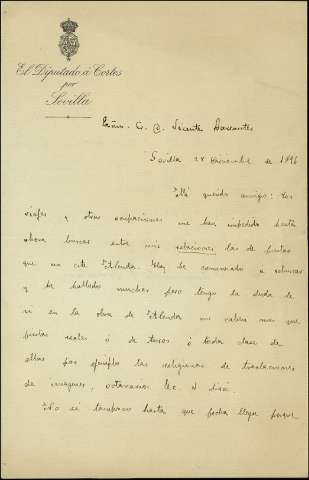 El Diputado á Cortes
por
Sevilla
Exmo. S. D. Vicente Barrantes
Sevilla 28 Diciembre de 1896
Mi querido amigo: Los
viajes y otras ocupaciones me han impedido hasta
ahora buscar entre mis relaciones las de fiestas
que no cite Alenda. Hoy he comenzado a rebuscar
y he hallado muchas pero tengo la duda de
si en la obra de Alenda no cabían mas que
fiestas reales ó de toros ó toda clase de
ellas por ejemplo las religiosas de traslaciones
de imagenes, octavarios &c. &
No sé tampoco hasta que fecha llega porque